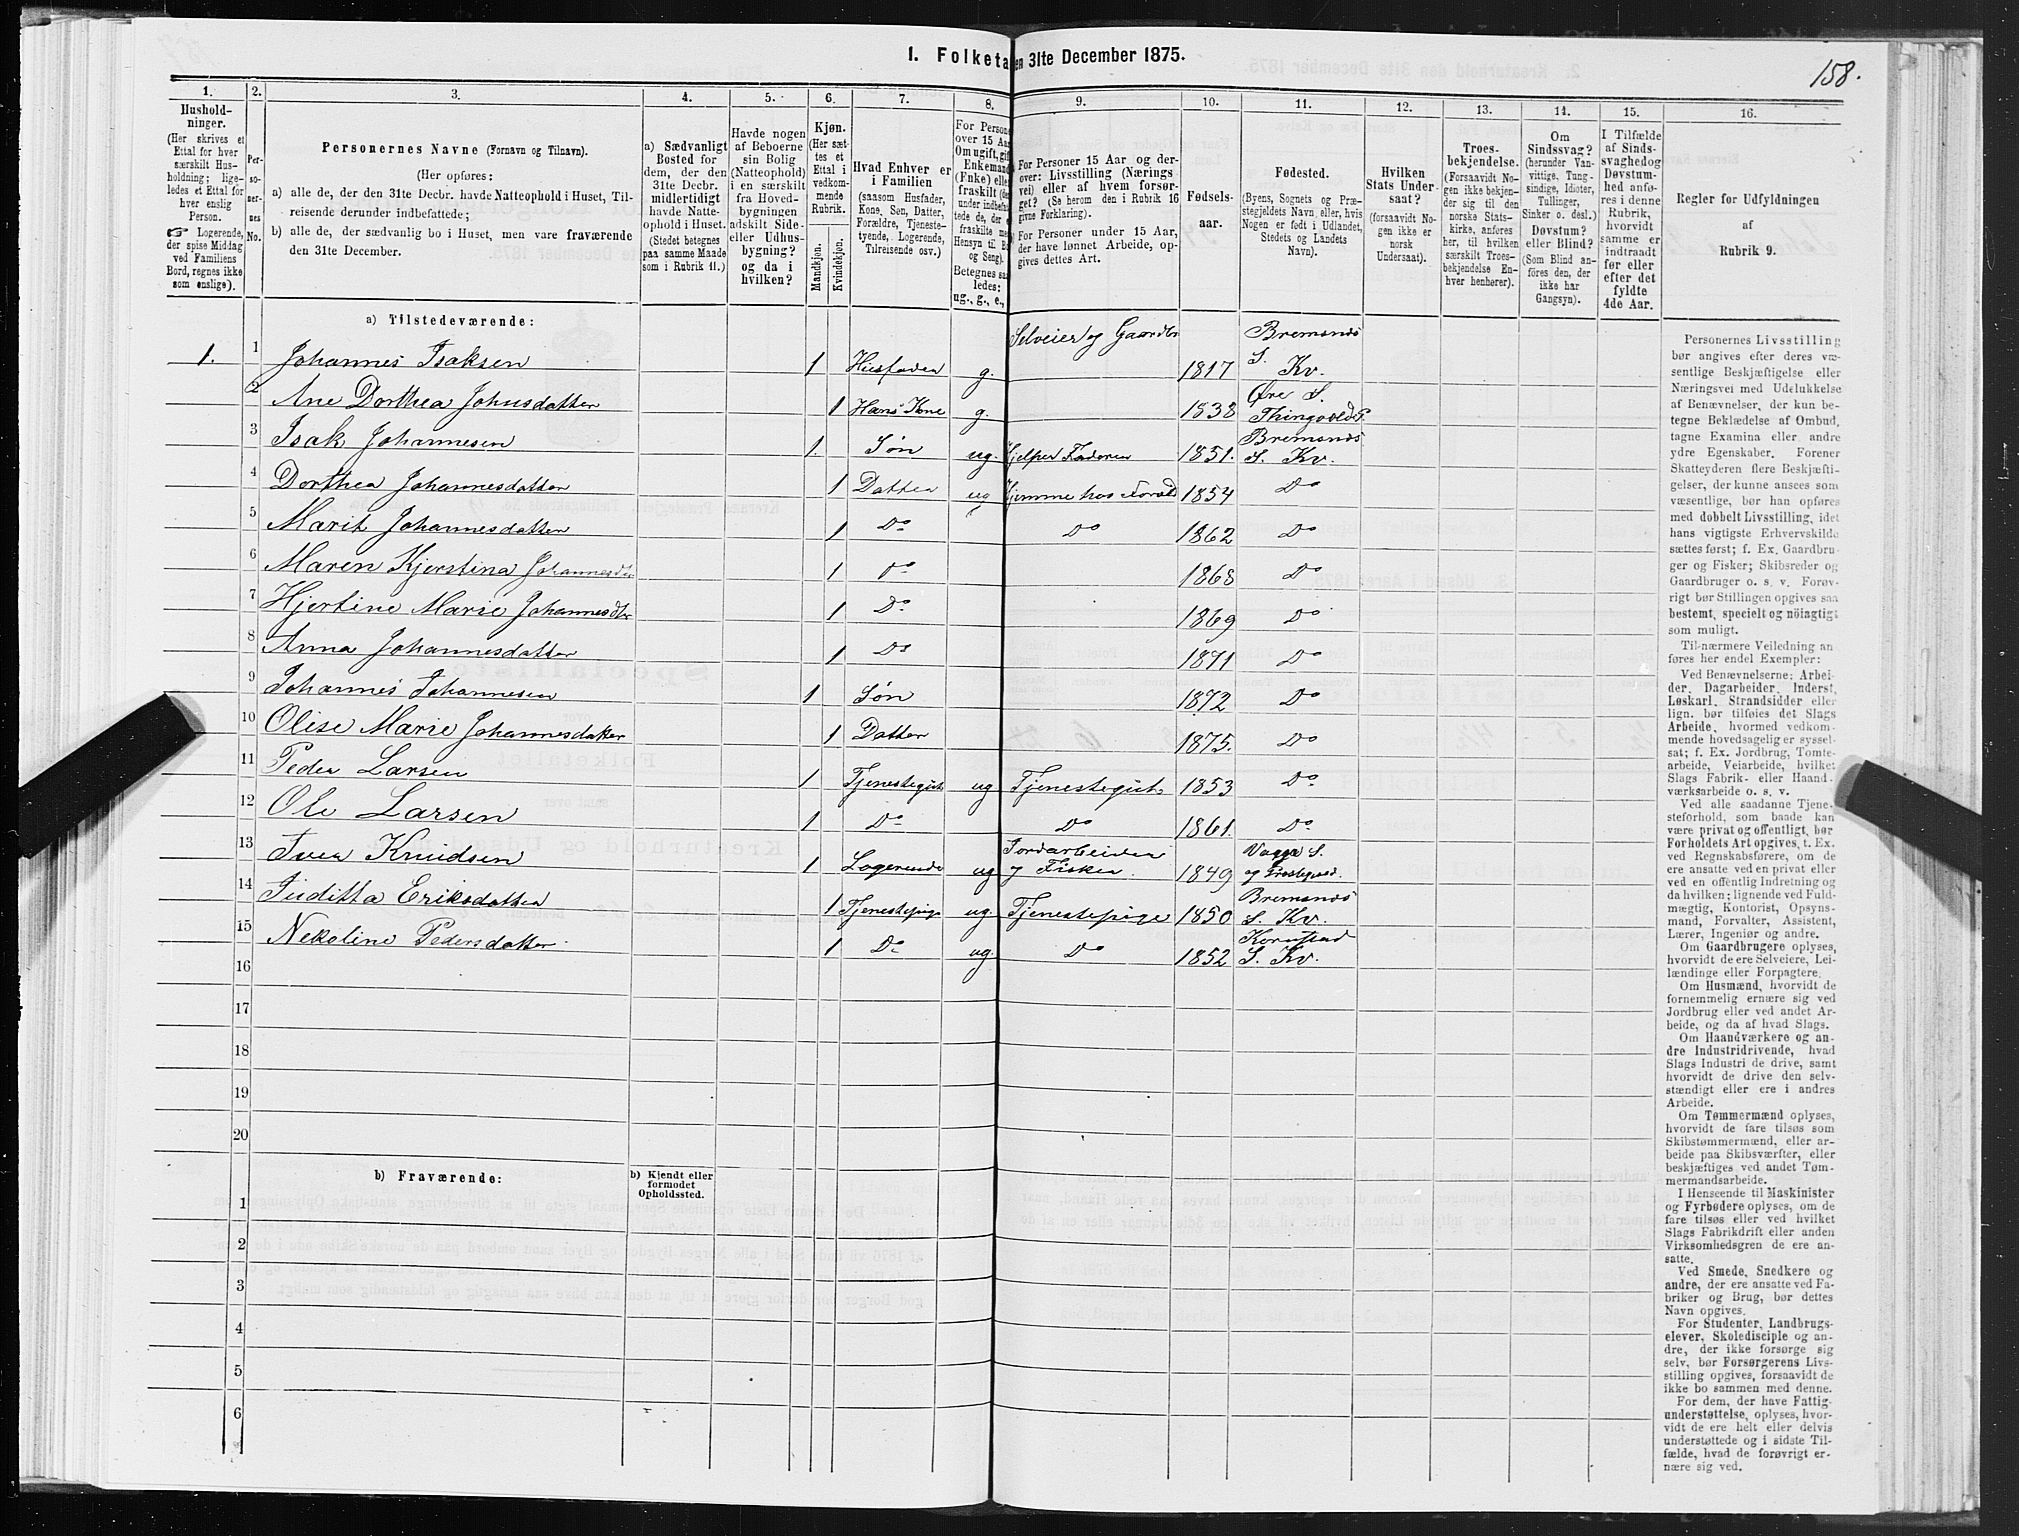 1. Folketa en 31te December 1875.
158.
1.
2.
3.
4.
5.
6.
7.
8.
9.
10.
11.
12.
13.
14.
15.
16.
Hushold-
ninger.
(Her skrives et
Ettal for hver
særskilt Hus-
holdning; lige-
ledes et Ettal for
hver enslig
Person.
☞ Logerende,
der spise Middag
ved Familiens
Bord, regnes ikke
som enslige).
Per-
so-
ner-
nes
No.
Personernes Navne (Fornavn og Tilnavn).
(Her opføres:
a) alle de, der den 31te Decbr. havde Natteophold i Huset, Til-
reisende derunder indbefattede;
b) alle de, der sædvanlig bo i Huset, men vare fraværende
den 31te December.
a) Sædvanligt
Bosted for
dem, der den
31te Decbr.
midlertidigt
havde Natte-
ophold i Huset.
(Stedet betegnes
paa samme Maade
som i Rubrik 11.)
Havde nogen
af Beboerne
sin Bolig
(Natteophold)
i en særskilt
fra Hoved-
bygningen
adskilt Side-
eller Udhus-
bygning?
og da i
hvilken?
Kjøn.
(Her sæt-
tes et
Ettal i
vedkom-
mende
Rubrik.
Mandkjøn.
Kvindekjøn.
Hvad Enhver er
i Familien
(saasom Husfader,
Kone, Søn, Datter,
Forældre, Tjeneste-
tyende, Logerende,
Tilreisende osv.)
For Persone
over 15 Aar
Om ugift, gif
Enkemand
(Enke) elle
fraskilt (de
under indbefat
tede de, der e
fraskilte me
Hensyn til B
og Seng).
Betegnes saa
ledes:
ug., g., e.,
For Personer 15 Aar og der-
over: Livsstilling (Nærings
vei) eller af hvem forsør-
get? (Se herom den i Rubrik 16
givne Forklaring).
For Personer under 15 Aar,
der have lønnet Arbeide, op-
gives dettes Art.
Fødsels-
aar.
Fødested.
(Byens, Sognets og Præ-
stegjeldets Navn, eller, hvis
Nogen er født i Udlandet,
Stedets og Landets
Navn).
Hvilken
Stats Under-
saat?
(forsaavidt No-
gen ikke er
norsk
Undersaat).
Troes-
bekjendelse.
(Forsaavidt No-
gen ikke bekjen-
der sig til den
norske Stats-
kirke, anføres
her, til hvilken
særskilt Troes-
bekjendelse En-
hver henhører).
Om
Sindssvag?
(herunder Van-
vittige, Tung-
sindige, Idioter,
Tullinger,
Sinker o. desl.)
Døvstum?
eller Blind?
(Som Blind an-
føres den, der
ikke har
Gangsyn).
I Tilfælde
af Sinds-
svaghed og
Døvstum-
hed anfø-
res i denne
Rubrik,
hvorvidt
samme er
indtraadt
før eller
efter det
fyldte
4de Aar.
Regler for Udfyldningen
af
Rubrik 9.
a) Tilstedeværende:
1. 1 Johannes Isaksen 1 Husfader g. Selveier og Gaardbr 1817 Bremsnes S. Kv.
2 Ane Dorthea Johnsdatter 1 Hans Kone g. 1838 Øre S. Thingvold P.
3 Isak Johannesen 1. Søn ug. Hjelper Faderen 1851. Bremsnes S. Kv.
4 Dorthea Johannesdatter 1 Datter ug Hjemme hos Foræld 1854 Do
5 Marit Johannesdatter 1 Do Do 1862 Do
6 Maren Kjerstina Johannesdtr 1 Do 1868 Do
7 Hjertine Marie Johannesdtr 1 Do 1869 Do
8 Anna Johannesdatter 1 Do 1871 Do
9 Johannes Johannesen 1 Søn 1872 Do
10 Olise Marie Johannesdatter 1 Datter 1875. Do
11 Peder Larsen 1 Tjenestegut ug Tjenestegut 1853 Do
12 Ole Larsen 1 Do Do 1861. Do
13 Iver Knudsen 1 Logerende ug Jordarbeider og Fisker. 1849 S. og
14 Juditta Eriksdatter 1 Tjenestepige ug. Tjenestepige 1850 Bremsnes S. Kv.
15 Nekoline Pedersdatter 1 Do ug. Do 1852 Kornstad S. Kv.
16
17
18
19
20
b) Fraværende:
b) Kjendt eller
formodet
Opholdssted.
1
2
3
4
5
6
Personernes Livsstilling
bør angives efter deres væ-
sentlige Beskjæftigelse eller
Næringsvei med Udelukkelse
af Benævnelser, der kun be-
tegne Beklædelse af Ombud,
tagne Examina eller andre
ydre Egenskaber. Forener
Skatteyderen flere Beskjæfti-
gelser, der kunne ansees som
væsentlige, bør han opføres
med dobbelt Livsstilling, idet
hans vigtigste Erhvervskilde
sættes først; f. Ex. Gaardbru-
ger og Fisker; Skibsreder og
Gaardbruger o. s. v. Forøv-
rigt bør Stillingen opgives saa
bestemt, specielt og nöiagtigt
som muligt.
Til nærmere Veiledning an-
føres her endel Exempler:
Ved Benævnelserne: Arbei-
der, Dagarbeider, Inderst,
Løskarl, Strandsidder eller
lign. bør tilføies det Slags
Arbeide, hvormed vedkom-
mende hovedsagelig er syssel-
sat; f. Ex. Jordbrug, Tomte-
arbeide, Veiarbeide, hvilket
Slags Fabrik- eller Haand-
værksarbeide o. s. v.
Ved alle saadanne Tjene-
steforhold, som baade kan
være privat og offentligt, bør
Forholdets Art opgives, t. Ex.
ved Regnskabsførere, om de
ere ansatte ved en privat eller
ved en offentlig Indretning og
da hvilken; lignende ved Fuld-
mægtig, Kontorist, Opsyns-
mand, Forvalter, Assistent,
Lærer, Ingeniør og andre.
Om Gaardbrugere oplyses,
hvorvidt de ere Selveiere, Lei-
lændinge eller Forpagtere.
Om Husmænd, hvorvidt de
fornemmelig ernære sig ved
Jordbrug eller ved andet Ar-
beide, og da af hvad Slags.
Om Haandværkere og an-
dre Industridrivende, hvad
Slags Industri de drive, samt
hvorvidt de drive den selv-
stændigt eller ere i andres
Arbeide.
Om Tømmermænd oplyses,
hvorvidt de fare tilsøs som
Skibstømmermænd, eller ar-
beide paa Skibsværfter, eller
beskjæftiges ved andet Tøm-
mermandsarbeide.
I Henseende til Maskinister
og Fyrbødere oplyses, om de
fare tilsøs eller ved hvilket
Slags Fabrikdrift eller anden
Virksomhedsgren de ere an-
satte.
Ved Smede, Snedkere og
andre, der ere ansatte ved Fa-
briker og Brug, bør dettes
Navn opgives.
For Studenter, Landbrugs-
elever, Skoledisciple og an-
dre, der ikke forsørge sig
selv, bør Forsørgerens Livs-
stilling opgives, forsaavidt de
ikke bo sammen med denne.
For dem, der have Fattig-
understøttelse, oplyses, hvor-
vidt de ere helt eller delvis
understøttede og i sidste Til-
fælde, hvad de forøvrigt er-
nære sig ved.